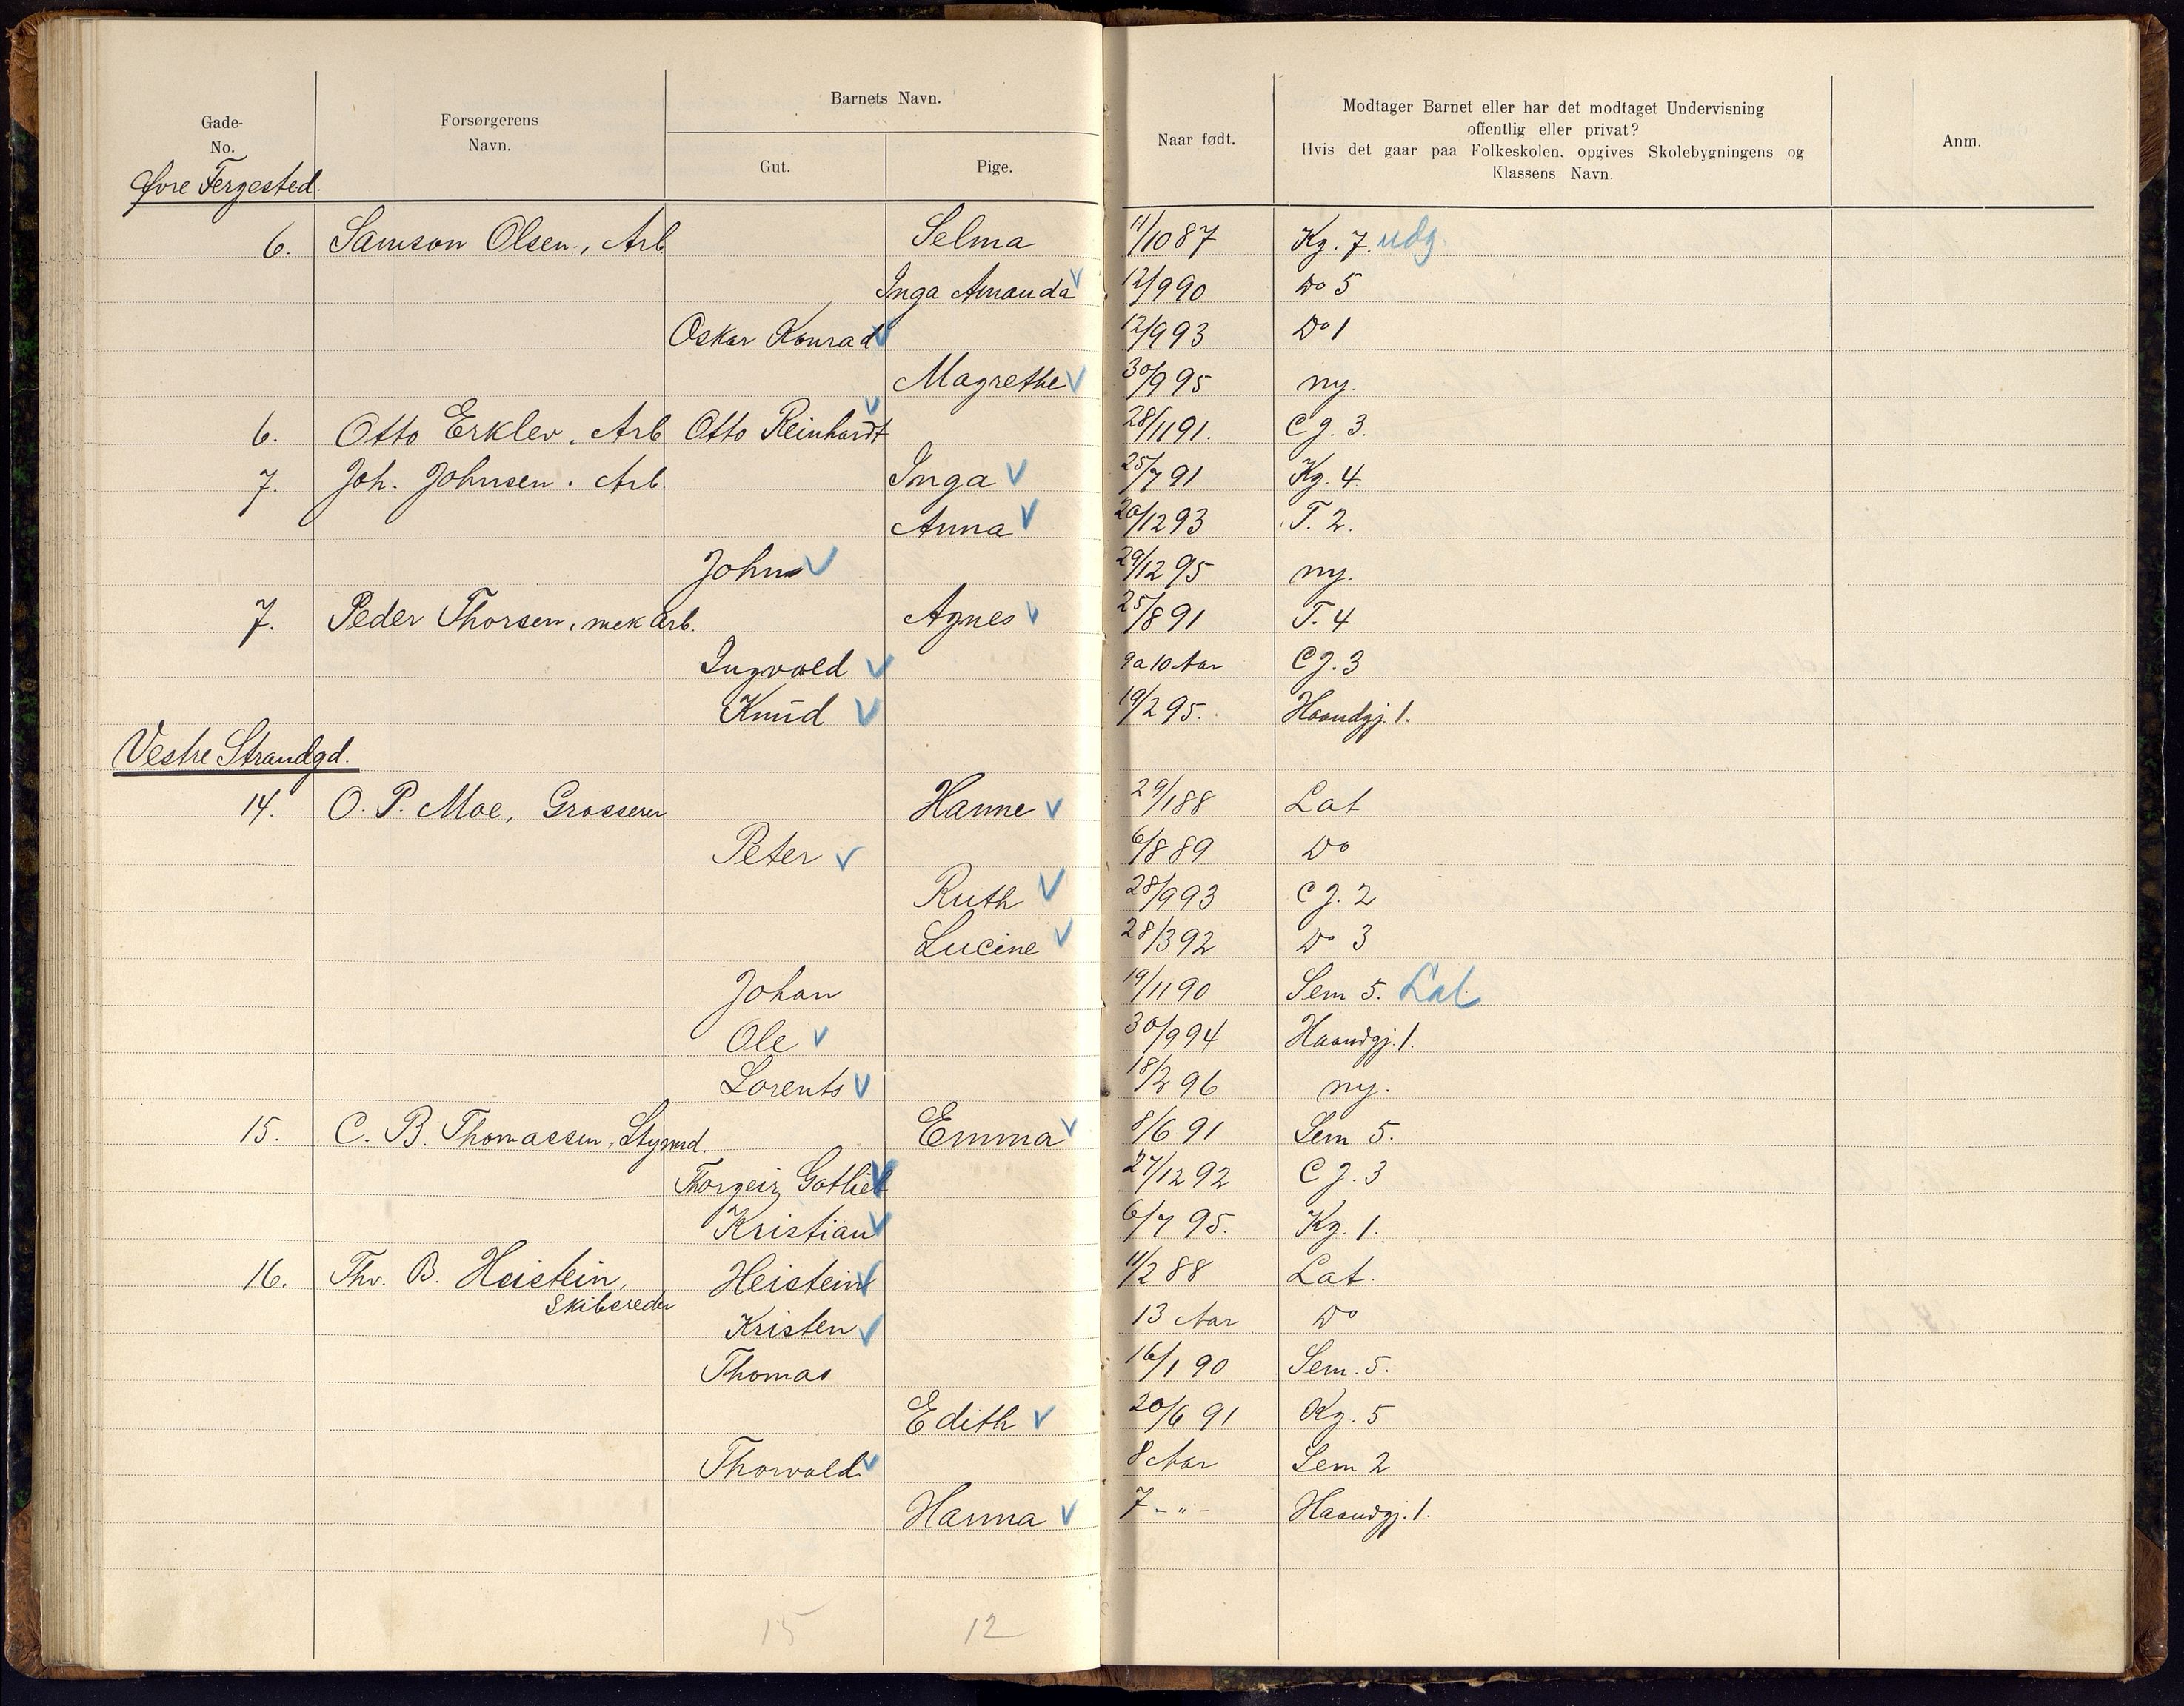 Gade-
No.
Forsørgerens
Navn.
Barnets Navn.
Gut.
Pige.
Naar født.
Modtager Barnet eller har det modtaget Undervisning
offentlig eller privat?
Hvis det gaar paa Folkeskolen. opgives Skolebygningens og
Klassens Navn.
Anm.
Øvre Fergested.
6. Samson Olsen, Arb Selma 11/10 87 Kg. 7. udg.
Inga Amanda 12/9 90 Do 5
Oskar Konrad 12/9 93 Do 1
Magrethe 30/9 95 ny.
6. Otto Erklev, Arb Otto Reinhardt 28/11 91. C J. 3.
7. Joh. Johnsen. Arb Inga 25/7 91 Kg. 4
Anna 20/12 93 T. 2.
John 29/12 95 ny.
7. Peder Thorsen, mek Arb. Agnes 25/8 91 T. 4
Ingvald 9 a 10 Aar C J. 3
Knud 19/2 95. Haandgj. 1.
Vestre Strandgd.
14. O. P. Moe, Grosserer Hanne 29/1 88 Lat
Peter 6/8 89 Do
Ruth 28/9 93 C J. 2
Lucine 28/3 92 Do 3
Johan 19/11 90 Sem 5. Lat
Ole 30/9 94 Haandgj. 1.
Lorents 18/2 96 ny.
15. C. B. Thomassen, Stymd. Emma 8/6 91 Sem 5.
Thorgeir Gotlieb 27/12 92 C J. 3
Kristian 6/7 95. Kg. 1.
16. Thv. B. Heistein, Heistein 11/2 88 Lat.
Skibsreder
Kristen 13 Aar Do
Thomas 16/1 90 Sem. 5.
Edith 20/6 91 Kg. 5
Thorvald 8 Aar Sem 2
Hanna 7 - " - Haandgj. 1.
15 12